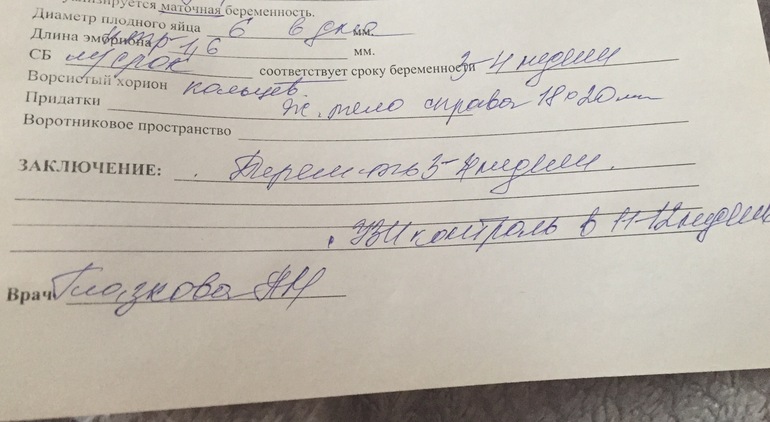 маточная беременность.
Диаметр плодного яйца 6 мм.
Длина эмбриона 1,6 мм.
СБ м/срок соответствует сроку беременности 3-4 недели
Ворсистый хорион кольцев.
Придатки Ж. тело справа 18х20мм
Воротниковое пространство
ЗАКЛЮЧЕНИЕ: Берем-ть 3-4 недели.
УЗИ контроль в 11-12 недель
Врач Глазкова АМ